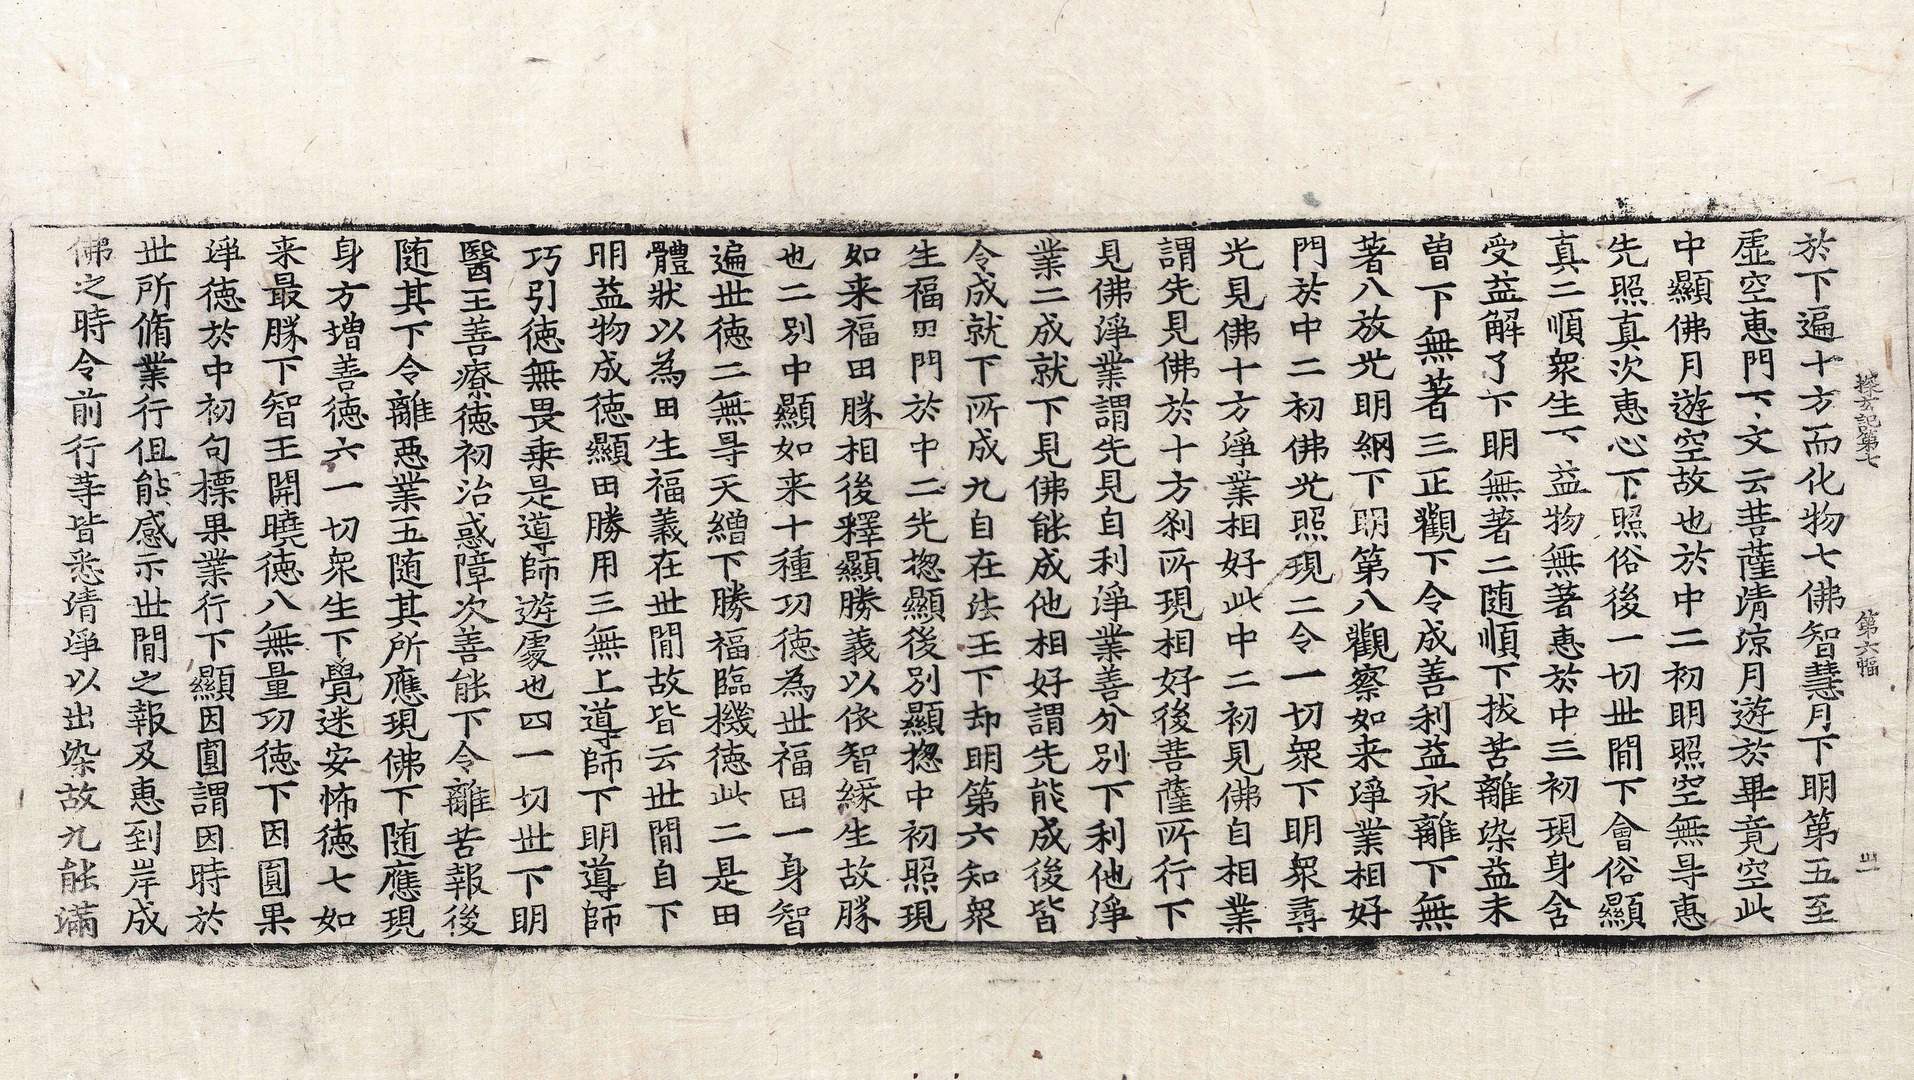 探玄記第七　第六幅　丗一
於下遍十方而化物七佛智慧月下明第五至
虛空惠門下文云菩薩清凉月遊於畢竟空此
中顯佛月遊空故也於中二初明照空無㝵惠
先照真次惠心下照俗後一切丗間下會俗顯
真二順衆生下益物無著惠於中三初現身含
受益解了下明無著二随順下拔苦離染益未
曽下無著三正觀下令成善利益永離下無
著八放光明網下明第八觀察如来淨業相好
門於中二初佛光照現二令一切衆下明衆尋
光見佛十方淨業相好此中二初見佛自相業
謂先見佛於十方剎所現相好後菩薩所行下
見佛淨業謂先見自利淨業善分別下利他淨
業二成就下見佛能成他相好謂先能成後皆
令成就下所成九自在法王下却明第六知衆
生福田門於中二先揔顯後別顯揔中初照現
如来福田勝相後釋顯勝義以依智縁生故勝
也二別中顯如来十種功徳為丗福田一身智
遍丗徳二無㝵天繒下勝福臨機徳此二是田
體狀以為田生福義在丗間故皆云丗間自下
明益物成徳顯田勝用三無上導師下明導師
巧引徳無畏乗是導師遊處也四一切丗下明
醫王善療徳初治惑障次善能下令離苦報後
随其下令離惡業五随其所應現佛下随應現
身方増善徳六一切衆生下覺迷安怖徳七如
来最勝下智王開曉徳八無量功徳下因圓果
淨徳於中初句標果業行下顯因圓謂因時於
丗所脩業行但能感示丗間之報及惠到岸成
佛之時令前行等皆悉清淨以出染故九能滿